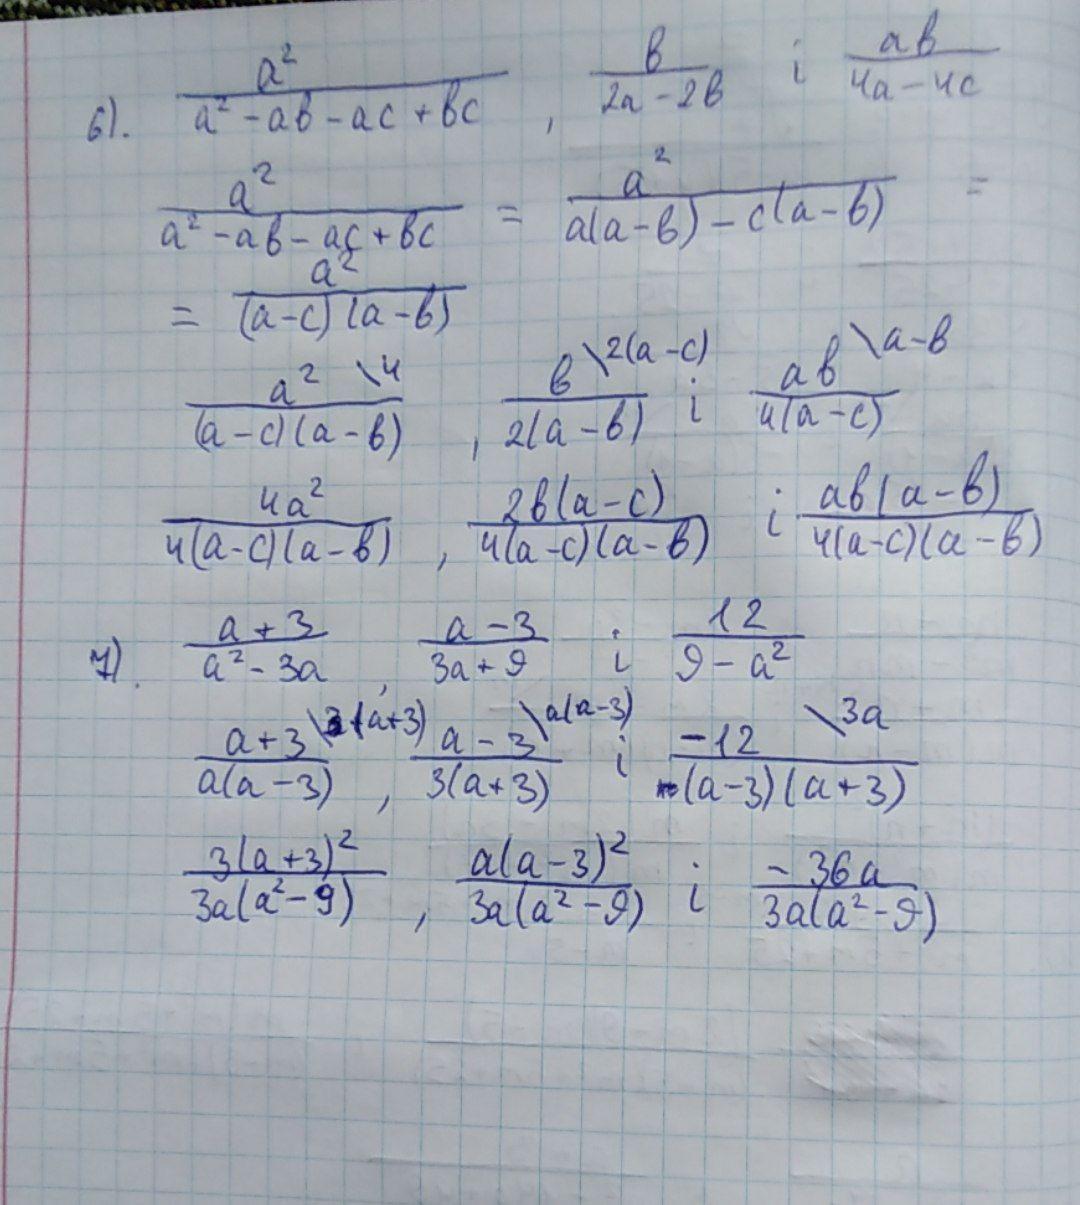 6). a²/(a² - ab - ac + bc), b/(2a - 2b) і ab/(4a - 4c)
a²/(a² - ab - ac + bc) = a²/(a(a - b) - c(a - b)) =
= a²/((a - c)(a - b))
a² \4/((a - c)(a - b)), b \2(a - c)/(2(a - b)) і ab \a - b/(4(a - c))
4a²/(4(a - c)(a - b)), 2b(a - c)/(4(a - c)(a - b)) і ab(a - b)/(4(a - c)(a - b))
7). (a + 3)/(a² - 3a), (a - 3)/(3a + 9) і 12/(9 - a²)
(a + 3) \3(a + 3)/(a(a - 3)), (a - 3) \a(a - 3)/(3(a + 3)) і -12 \3a/((a - 3)(a + 3))
3(a + 3)²/(3a(a² - 9)), a(a - 3)²/(3a(a² - 9)) і -36a/(3a(a² - 9))